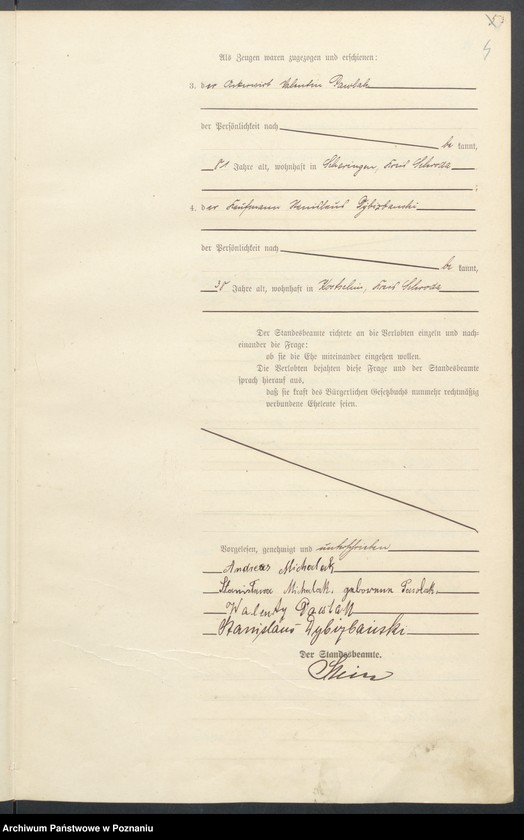 5
Als Zeugen waren zugezogen und erschienen:
3. der Ackerwirt Valentin Pawlak
der Persönlichkeit nach
be kannt,
51 Jahre alt, wohnhaft in Scheringen, Kreis Schroda
;
4. der Kaufmann Stanislaus Dybizbanski
der Persönlichkeit nach
be kannt,
38 Jahre alt, wohnhaft in Kostschin, Kreis Schroda
Der Standesbeamte richtete an die Verlobten einzeln und nach-
einander die Frage:
ob sie die Ehe miteinander eingehen wollen.
Die Verlobten bejahten diese Frage und der Standesbeamte
sprach hierauf aus,
daß sie kraft des Bürgerlichen Gesetzbuchs nunmehr rechtmäßig
verbundene Eheleute seien.
Vorgelesen, genehmigt und unterschrieben
Andreas Michalak
Stanisława Michalak, geborene Pawlak.
Walenty Pawlak
Stanislaus Dybizbański
Der Standesbeamte.
Stein
Archiwum Państwowe w Poznaniu